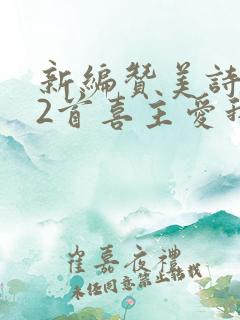 新編贊美詩
2首喜主愛我
崔嘉夜禮
未经同意禁止转载